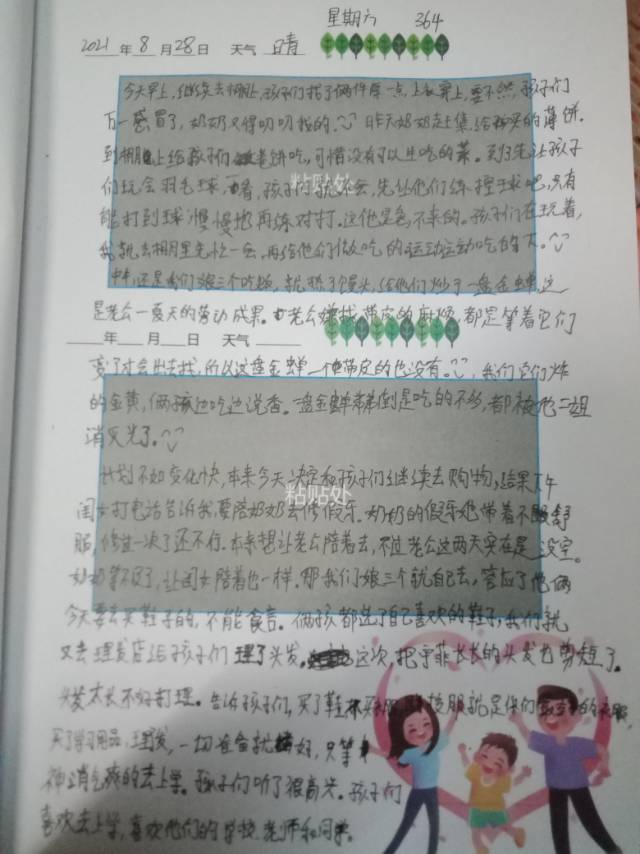 星期六 364
2021年8月28日 天气 晴
今天早上,继续去棚上,孩子们搭了俩件厚一点,上衣穿上,要不然,孩子们
万一感冒了,奶奶又得叨叨我的。昨天奶奶赶上集,给买的薄饼.
到棚上给孩子们卷饼吃,可惜没有可以生吃的菜。到了先让孩子
们玩会羽毛球,孩子们就不会,先让他们练接球吧,只有
粘贴处
能打到球,慢慢地再练对打。这他是急不来的。孩子们在玩着,
我就去棚里先忙一会,再给他们做吃的
中午,还是我们娘三个吃饭,就热了馒头,给他们炒了一盘金蝉,这
是老公一夏天的劳动成果。老公嫌找带皮的麻烦,都是等着它们
年 月 日 天气
变了才会出去找,所以这盘金蝉一个带皮的也没有。我们它们炸
的金黄,俩孩边吃边说香。盘金蝉倒是吃的不多,都被他二姐
消灭光了。
计划不如变化快,本来今天决定和孩子们继续去购物,结果下午
闺女打电话告诉我,要陪奶奶去修假牙。奶奶的假牙她带着不舒
粘贴处
服,修过一次了还不行。本来想让老公陪着去,不过老公这两天实在是没空。
奶奶等不及了,让闺女陪着也一样。那我们娘三个就自己去。答应了他俩
今天要去买鞋子的,不能食言。俩孩都选了自己喜欢的鞋子,我们就
又去理发店给孩子们理了头发。这次,把宇菲长长的头发也剪短了。
头发太长不好打理。告诉孩子们,买了鞋
买了学习用品,理发,一切准备就好,只等
神清气爽的去上学。孩子们听了很高兴。孩子们
喜欢去上学,喜欢他们的学校,老师和同学。